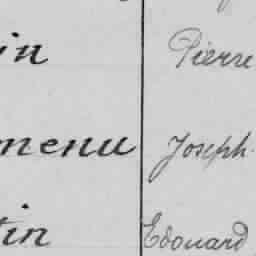 in Pierre
menu Joseph.
tin Edouard